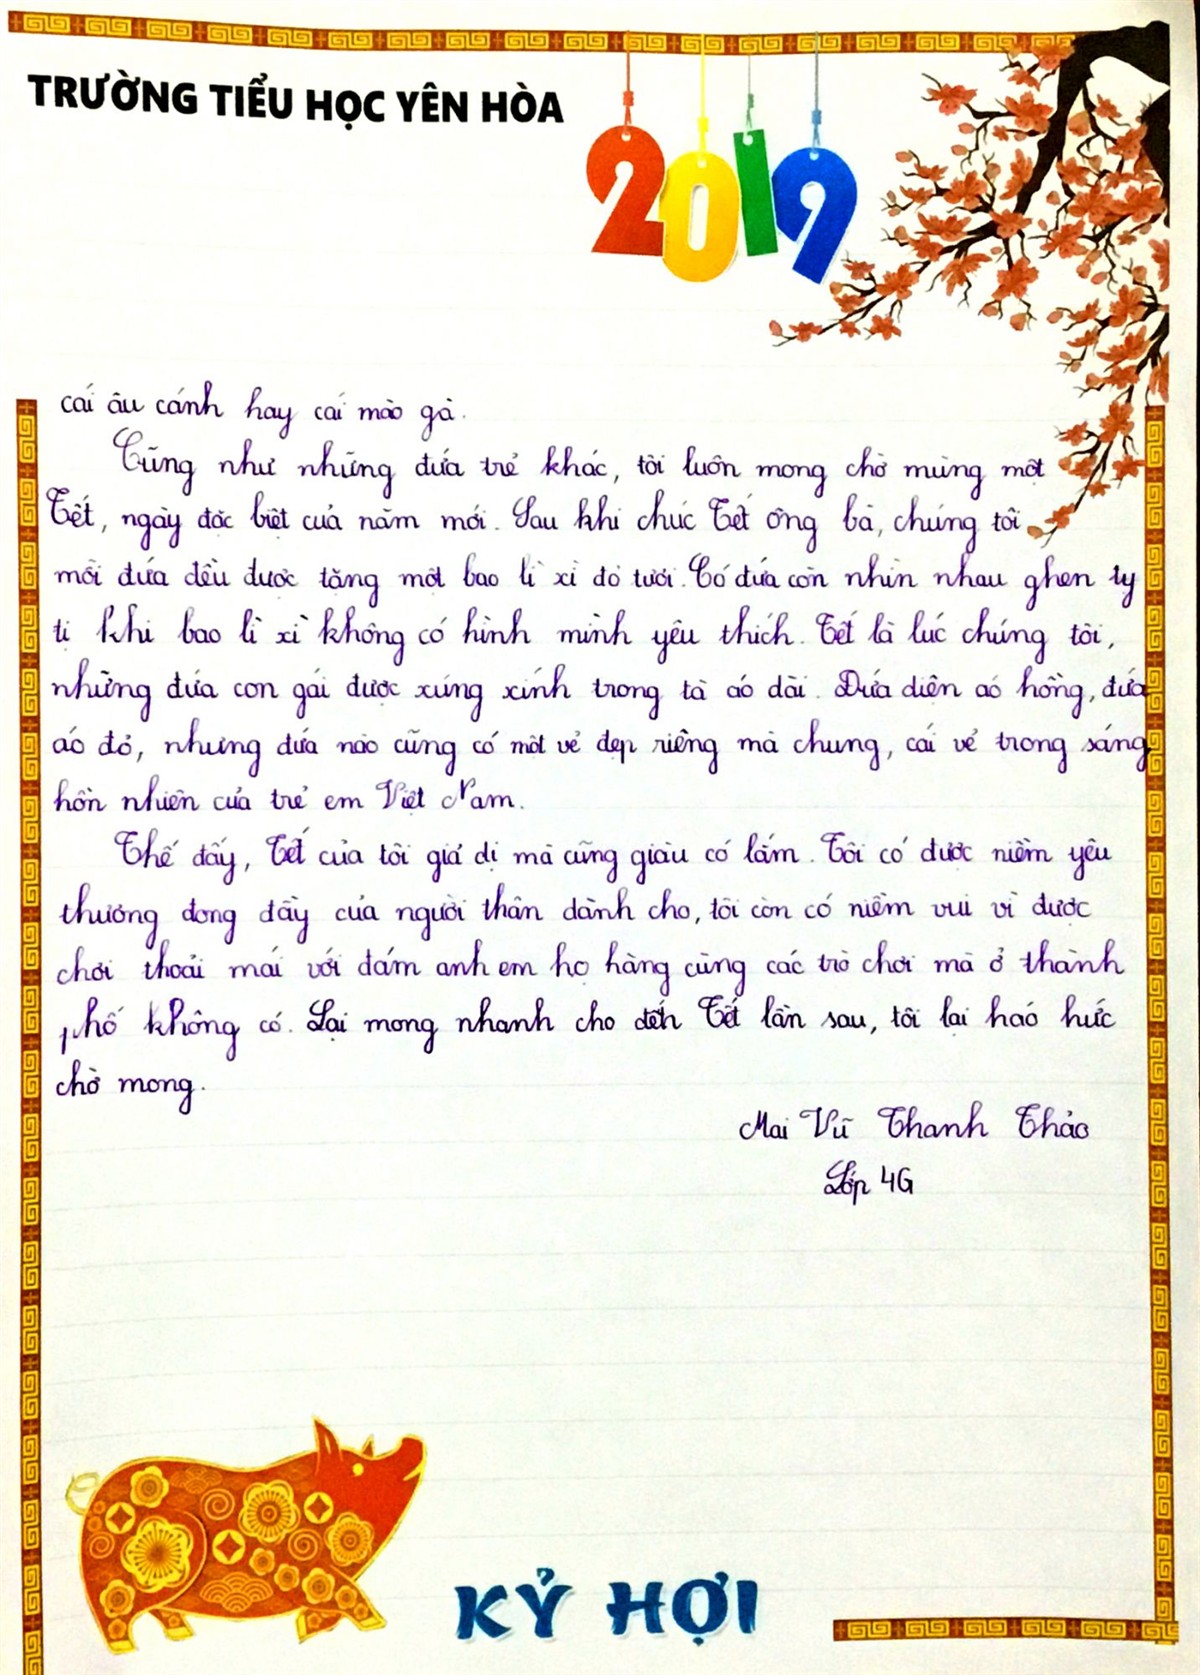 TRƯỜNG TIỂU HỌC YÊN HÒA
2019
cái âu cánh hay cái mào gà.
Cũng như những đứa trẻ khác, tôi luôn mong chờ mùng một
Tết, ngày đặc biệt của năm mới. Sau khi chúc Tết ông bà, chúng tôi
mỗi đứa đều được tặng một bao lì xì đỏ tươi. Có đứa còn nhìn nhau ghen tỵ
tị khi bao lì xì không có hình mình yêu thích. Tết là lúc chúng tôi,
những đứa con gái được xúng xính trong tà áo dài. Đứa diện áo hồng, đứa
áo đỏ, nhưng đứa nào cũng có một vẻ đẹp riêng mà chung, cái vẻ trong sáng
hồn nhiên của trẻ em Việt Nam.
Thế đấy, Tết của tôi giả dị mà cũng giàu có lắm. Tôi có được niềm yêu
thương đong đầy của người thân dành cho, tôi còn có niềm vui vì được
chơi thoải mái với đám anh em họ hàng cùng các trò chơi mà ở thành
phố không có. Lại mong nhanh cho đến Tết lần sau, tôi lại háo hức
chờ mong.
Mai Vũ Thanh Thảo
Lớp 4G
KỶ HỢI